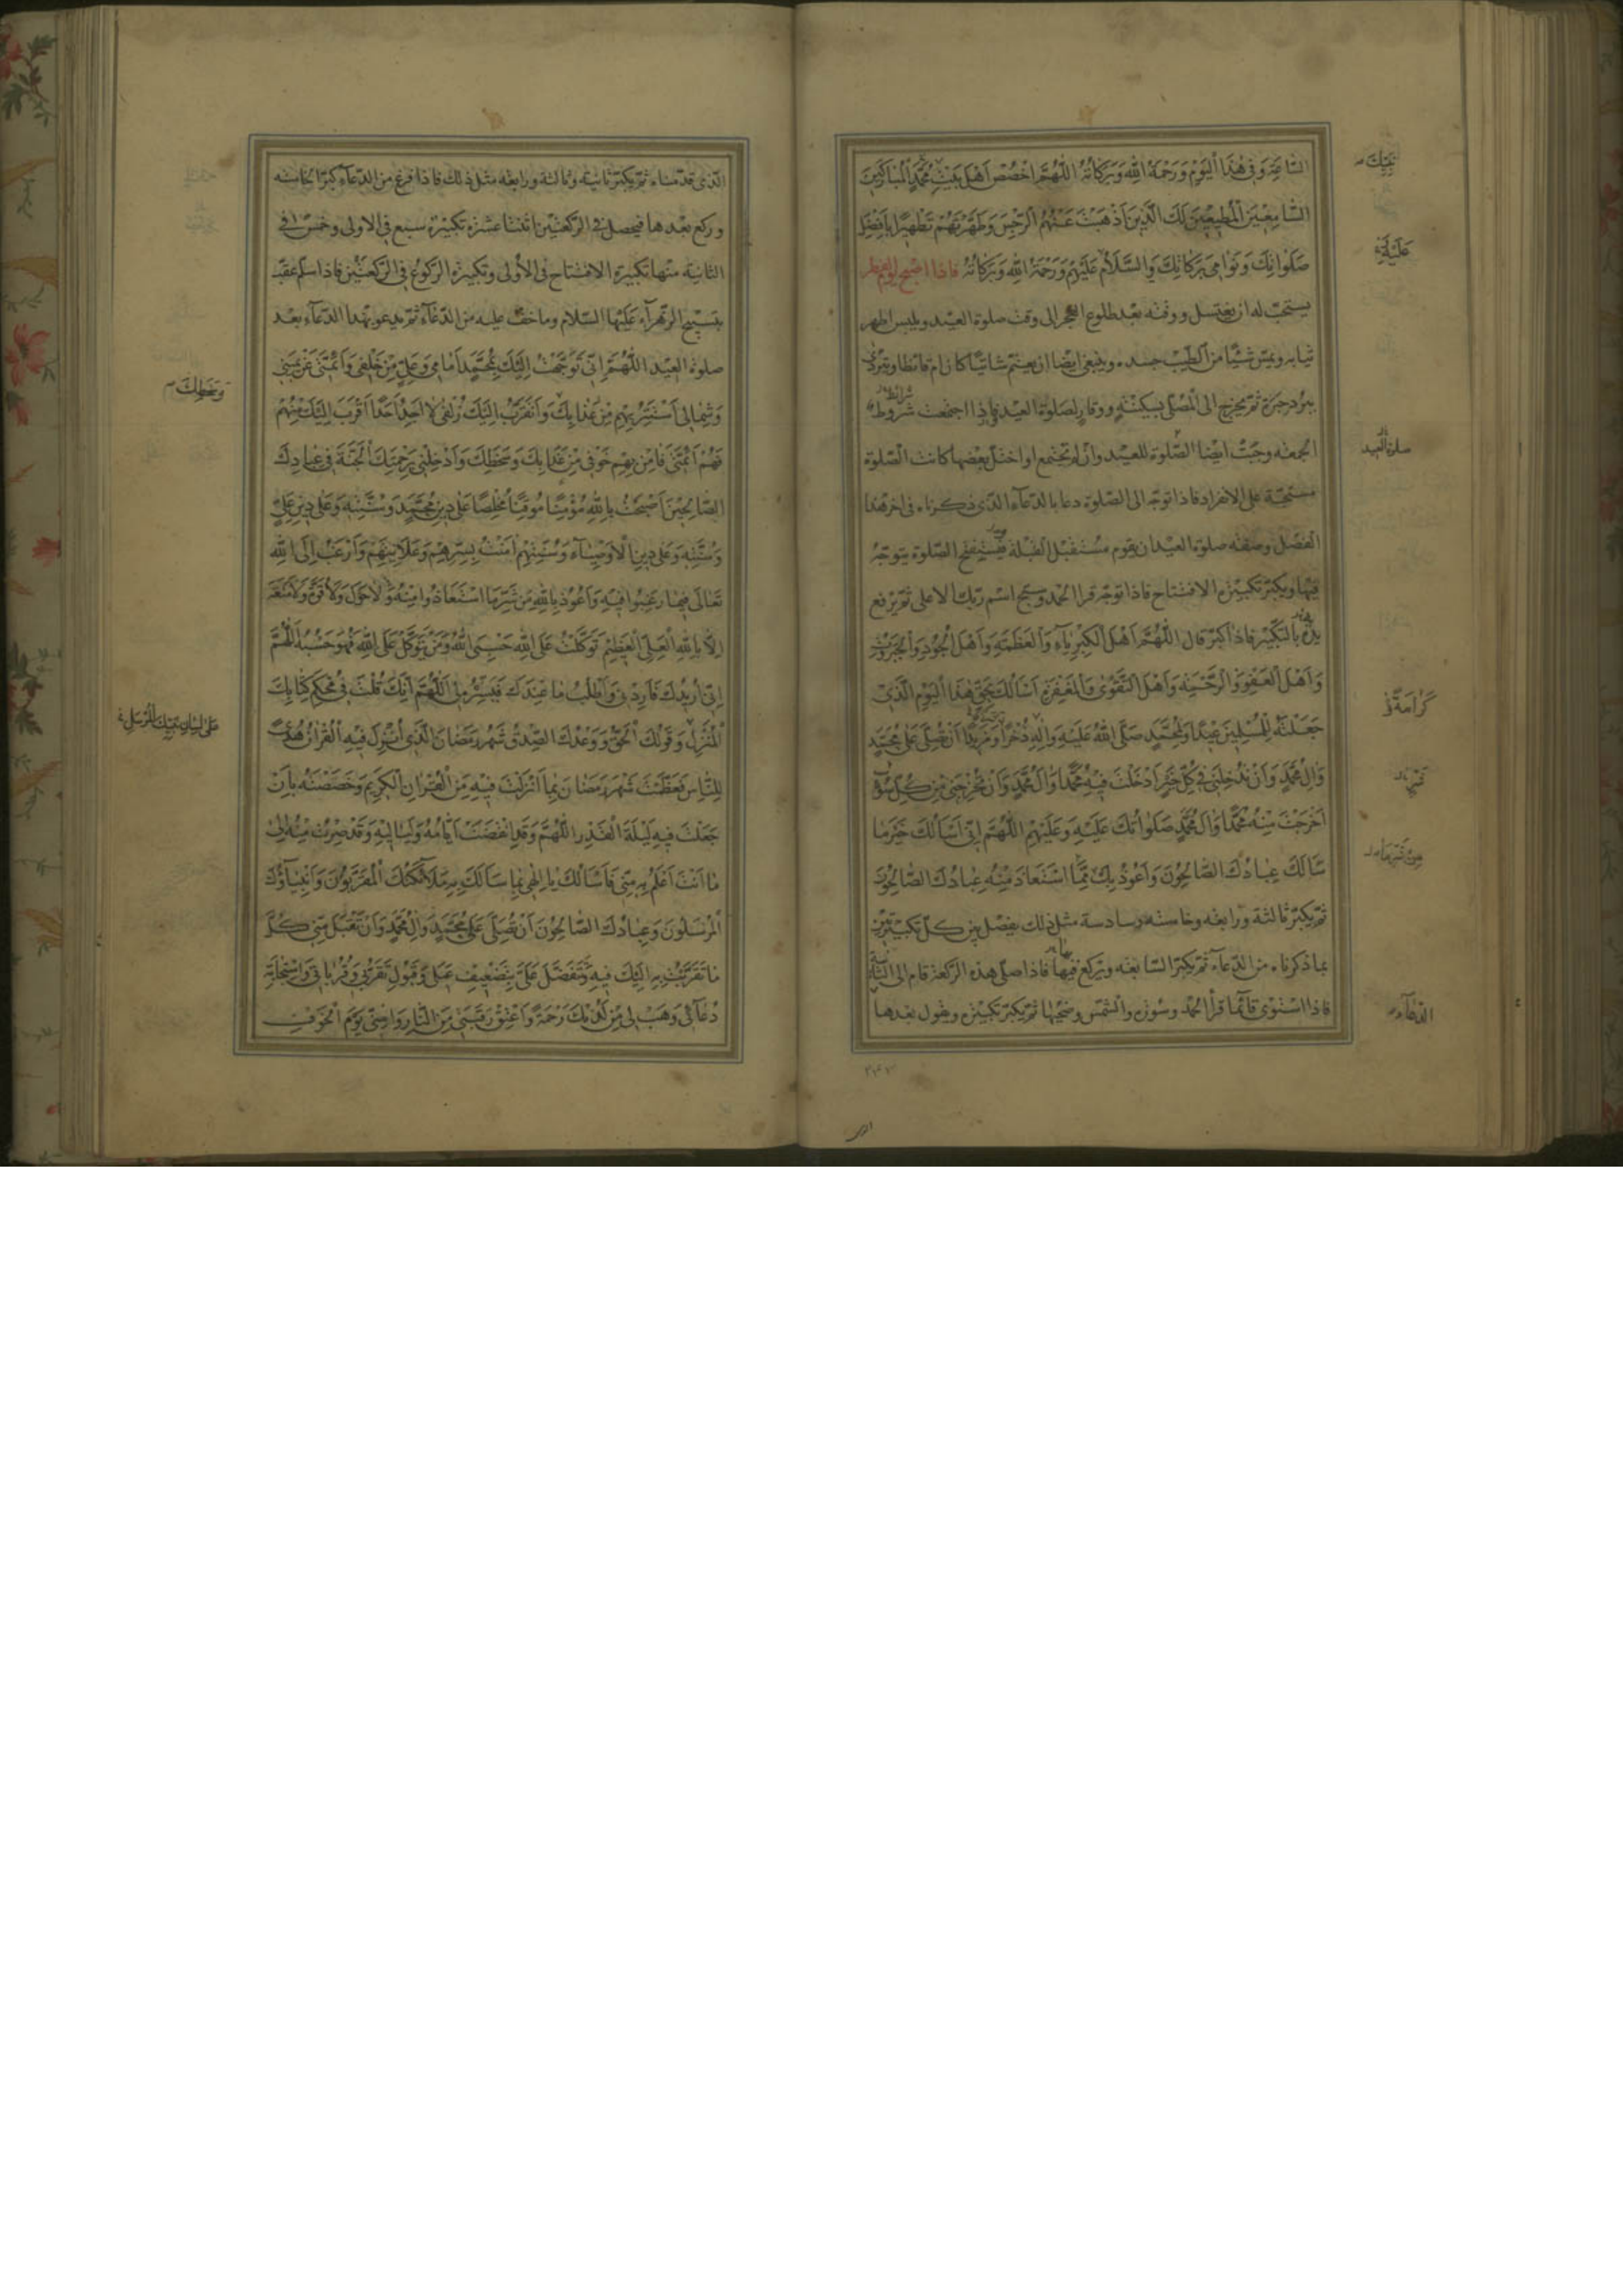 السَّاعَةِ وَفِي هٰذَا الْيَوْمِ وَرَحْمَةُ اللهِ وَبَرَكَاتُهُ اللّٰهُمَّ اخْصُصْ أَهْلَ بَيْتِ مُحَمَّدٍ الْمُبَارَكِينَ
السَّامِعِينَ الْمُطِيعِينَ لَكَ الَّذِينَ أَذْهَبْتَ عَنْهُمُ الرِّجْسَ وَطَهَّرْتَهُمْ تَطْهِيرًا بِأَفْضَلِ
صَلَوَاتِكَ وَنَوَامِي بَرَكَاتِكَ وَالسَّلَامُ عَلَيْهِمْ وَرَحْمَةُ اللهِ وَبَرَكَاتُهُ فاذا اصبح يوم الفطر
يستحبّ له ان يغتسل ووقته بعد طلوع الفجر الى وقت صلوة العيد ويلبس اطهر
ثيابه ويمسّ شيئًا من الطيب جسده وينبغى ايضا ان يعتمّ شاتيًا كان ام قائظا ويتردّى
ببرد حبرة ثمّ يخرج الى المصلّى بسكينة ووقار لصلوة العيد فإذا اجتمعت شروط
الجمعه وجبت ايضا الصّلوة للعيد وان لم تجتمع او اختلّ بعضها كانت الصّلوة
مستحبّة على الانفراد فاذا توجّه الى الصّلوة دعا بالدّعآء الذى ذكرناه فى اخر هذا
الفصل وصفة صلوة العيد ان يقوم مستقبل القبلة فيستفتح الصّلوة يتوجّه
فيها ويكبّر تكبيرة الافتتاح فاذا توجّه قرا الحمد وسبّح اسم ربك الاعلى ثمّ يرفع
يديه بالتكبير فاذا كبّر قال اللّٰهُمَّ أَهْلَ الْكِبْرِيَاءِ وَالْعَظَمَةِ وَأَهْلَ الْجُودِ وَالْجَبَرُوتِ
وَأَهْلَ الْعَفْوِ وَالرَّحْمَةِ وَأَهْلَ التَّقْوَى وَالْمَغْفِرَةِ أَسْأَلُكَ بِحَقِّ هٰذَا الْيَوْمِ الَّذِي
جَعَلْتَهُ لِلْمُسْلِمِينَ عِيدًا وَلِمُحَمَّدٍ صَلَّى اللهُ عَلَيْهِ وَآلِهِ ذُخْرًا وَمَزِيدًا أَنْ تُصَلِّيَ عَلَى مُحَمَّدٍ
وَآلِ مُحَمَّدٍ وَأَنْ تُدْخِلَنِي فِي كُلِّ خَيْرٍ أَدْخَلْتَ فِيهِ مُحَمَّدًا وَآلَ مُحَمَّدٍ وَأَنْ تُخْرِجَنِي مِنْ كُلِّ سُوءٍ
أَخْرَجْتَ مِنْهُ مُحَمَّدًا وَآلَ مُحَمَّدٍ صَلَوَاتُكَ عَلَيْهِ وَعَلَيْهِمْ اللّٰهُمَّ إِنِّي أَسْأَلُكَ خَيْرَ مَا
سَأَلَكَ عِبَادُكَ الصَّالِحُونَ وَأَعُوذُ بِكَ مِمَّا اسْتَعَاذَ مِنْهُ عِبَادُكَ الصَّالِحُونَ
ثمّ يكبّر ثالثة ورابعه وخامسه وسادسة مثل ذلك يفصل بين كلّ تكبيرتين
بما ذكرناه من الدّعآء ثمّ يكبّر السّابعه ويركع فيها فاذا صلّى هذه الركعة قام الى الثّانية
فاذا استوى قائمًا قرأ الحمد وسورة والشّمس وضحيها ثمّ يكبّر تكبيرة ويقول بعدها
عَلَيْهِ
صلوة العيد
كَرَامَةً وَ
الدّعآء
٢٤٧
الذى قدّمناه ثمّ يكبّر ثانية وثالثة ورابعة مثل ذلك فاذا فرغ من الدّعآء كبّر الخامسه
وركع بعدها فيحصل فى الركعتين اثنتا عشرة تكبيرة سبع فى الاولى وخمس فى
الثانية منها تكبيرة الافتتاح فى الاولى وتكبيرة الركوع فى الركعتين فاذا سلّم عقّب
بتسبيح الزهرآء عليها السّلام وما خفّ عليه من الدّعآء ثمّ يدعو بهذا الدّعآء بعد
صلوة العيد اللّٰهُمَّ إِنِّي تَوَجَّهْتُ إِلَيْكَ بِمُحَمَّدٍ أَمَامِي وَعَلِيٍّ مِنْ خَلْفِي وَأَئِمَّتِي عَنْ يَمِينِي
وَشِمَالِي أَسْتَتِرُ بِهِمْ مِنْ عَذَابِكَ وَأَتَقَرَّبُ إِلَيْكَ زُلْفَى لَا أَجِدُ أَحَدًا أَقْرَبَ إِلَيْكَ مِنْهُمْ
فَهُمْ أَئِمَّتِي فَآمِنْ بِهِمْ خَوْفِي مِنْ عَذَابِكَ وَسَخَطِكَ وَأَدْخِلْنِي بِرَحْمَتِكَ الْجَنَّةَ فِي عِبَادِكَ
الصَّالِحِينَ أَصْبَحْتُ بِاللهِ مُؤْمِنًا مُوقِنًا مُخْلِصًا عَلَى دِينِ مُحَمَّدٍ وَسُنَّتِهِ وَعَلَى دِينِ عَلِيٍّ
وَسُنَّتِهِ وَعَلَى دِينِ الْأَوْصِيَاءِ وَسُنَّتِهِمْ آمَنْتُ بِسِرِّهِمْ وَعَلَانِيَتِهِمْ وَأَرْغَبُ إِلَى اللهِ
تَعَالَى فِيمَا رَغِبُوا فِيهِ وَأَعُوذُ بِاللهِ مِنْ شَرِّ مَا اسْتَعَاذُوا مِنْهُ وَلَا حَوْلَ وَلَا قُوَّةَ وَلَا مَنَعَةَ
إِلَّا بِاللهِ الْعَلِيِّ الْعَظِيمِ تَوَكَّلْتُ عَلَى اللهِ حَسْبِيَ اللهُ وَمَنْ يَتَوَكَّلْ عَلَى اللهِ فَهُوَ حَسْبُهُ اللّٰهُمَّ
إِنِّي أُرِيدُكَ فَأَرِدْنِي وَأَطْلُبُ مَا عِنْدَكَ فَيَسِّرْهُ لِي اللّٰهُمَّ إِنَّكَ قُلْتَ فِي مُحْكَمِ كِتَابِكَ
الْمُنْزَلِ وَقَوْلُكَ الْحَقُّ وَوَعْدُكَ الصِّدْقُ شَهْرُ رَمَضَانَ الَّذِي أُنْزِلَ فِيهِ الْقُرْآنُ هُدًى
لِلنَّاسِ فَعَظَّمْتَ شَهْرَ رَمَضَانَ بِمَا أَنْزَلْتَ فِيهِ مِنَ الْقُرْآنِ الْكَرِيمِ وَخَصَصْتَهُ بِأَنْ
جَعَلْتَ فِيهِ لَيْلَةَ الْقَدْرِ اللّٰهُمَّ وَقَدِ انْقَضَتْ أَيَّامُهُ وَلَيَالِيهِ وَقَدْ صِرْتُ مِنْهُ إِلَى
مَا أَنْتَ أَعْلَمُ بِهِ مِنِّي فَأَسْأَلُكَ يَا إِلٰهِي بِمَا سَأَلَكَ بِهِ مَلَائِكَتُكَ الْمُقَرَّبُونَ وَأَنْبِيَاؤُكَ
الْمُرْسَلُونَ وَعِبَادُكَ الصَّالِحُونَ أَنْ تُصَلِّيَ عَلَى مُحَمَّدٍ وَآلِ مُحَمَّدٍ وَأَنْ تَقْبَلَ مِنِّي كُلَّ
مَا تَقَرَّبْتُ بِهِ إِلَيْكَ فِيهِ وَتَتَفَضَّلَ عَلَيَّ بِتَضْعِيفِ عَمَلِي وَقَبُولِ تَقَرُّبِي وَقُرُبَاتِي وَاسْتِجَابَةِ
دُعَائِي وَهَبْ لِي مِنْ لَدُنْكَ رَحْمَةً وَأَعْتِقْ رَقَبَتِي مِنَ النَّارِ وَآمِنِّي يَوْمَ الْخَوْفِ
وَسَخَطِكَ
عَلَى لِسَانِ نَبِيِّكَ الْمُرْسَلِ